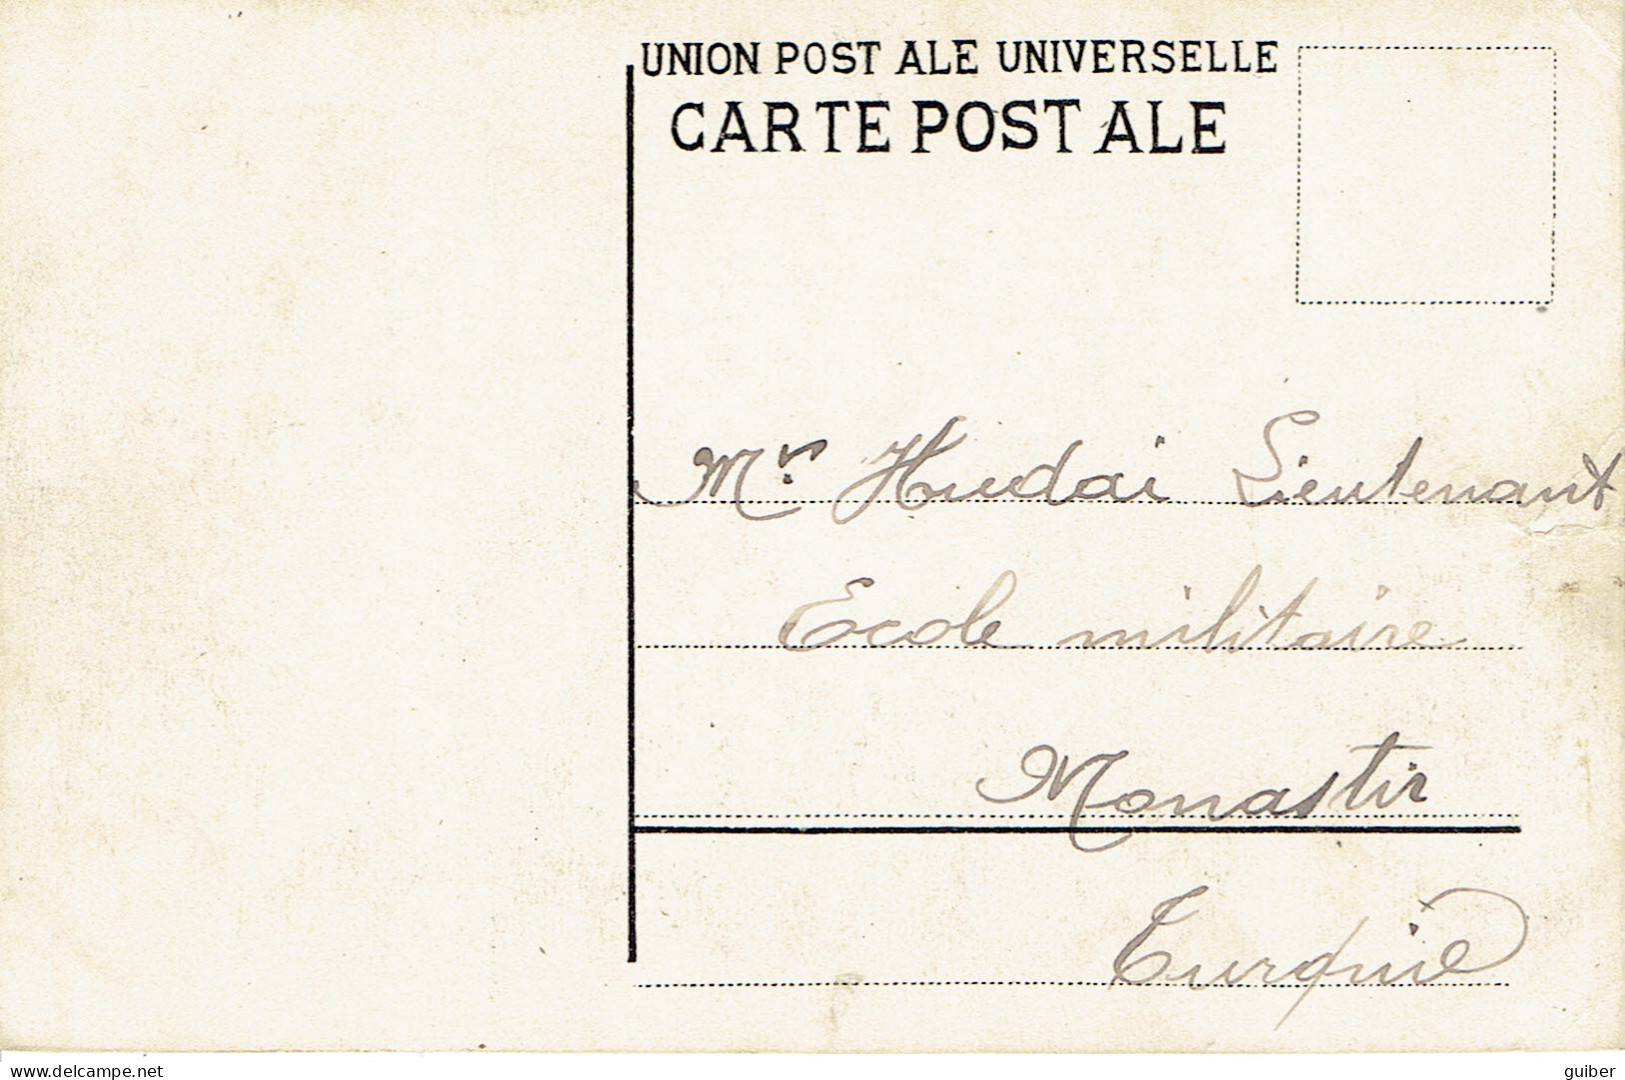 UNION POSTALE UNIVERSELLE
CARTE POSTALE
Mr Hudai Lieutenant
Ecole militaire
Monastir
Turquie
delcampe.net
guiber